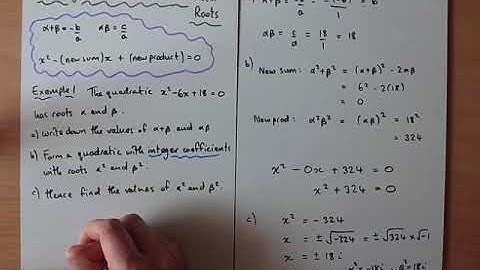 Roots
α+β = -b/a   αβ = c/a
x² - (new sum)x + (new product) = 0
Example! The quadratic x²-6x+18=0
has roots α and β.
a) write down the values of α+β and αβ
b) Form a quadratic with integer coefficients
with roots α² and β².
c) Hence find the values of α² and β².
1
αβ = c/a = 18/1 = 18
b)
New sum: α²+β² = (α+β)² - 2αβ
= 6² - 2(18)
= 0
New prod: α²β² = (αβ)² = 18²
= 324
x² - 0x + 324 = 0
x² + 324 = 0
c) x² = -324
x = ±√-324 = ±√324 × √-1
x = ± 18i
α² = -18i, β² = 18i